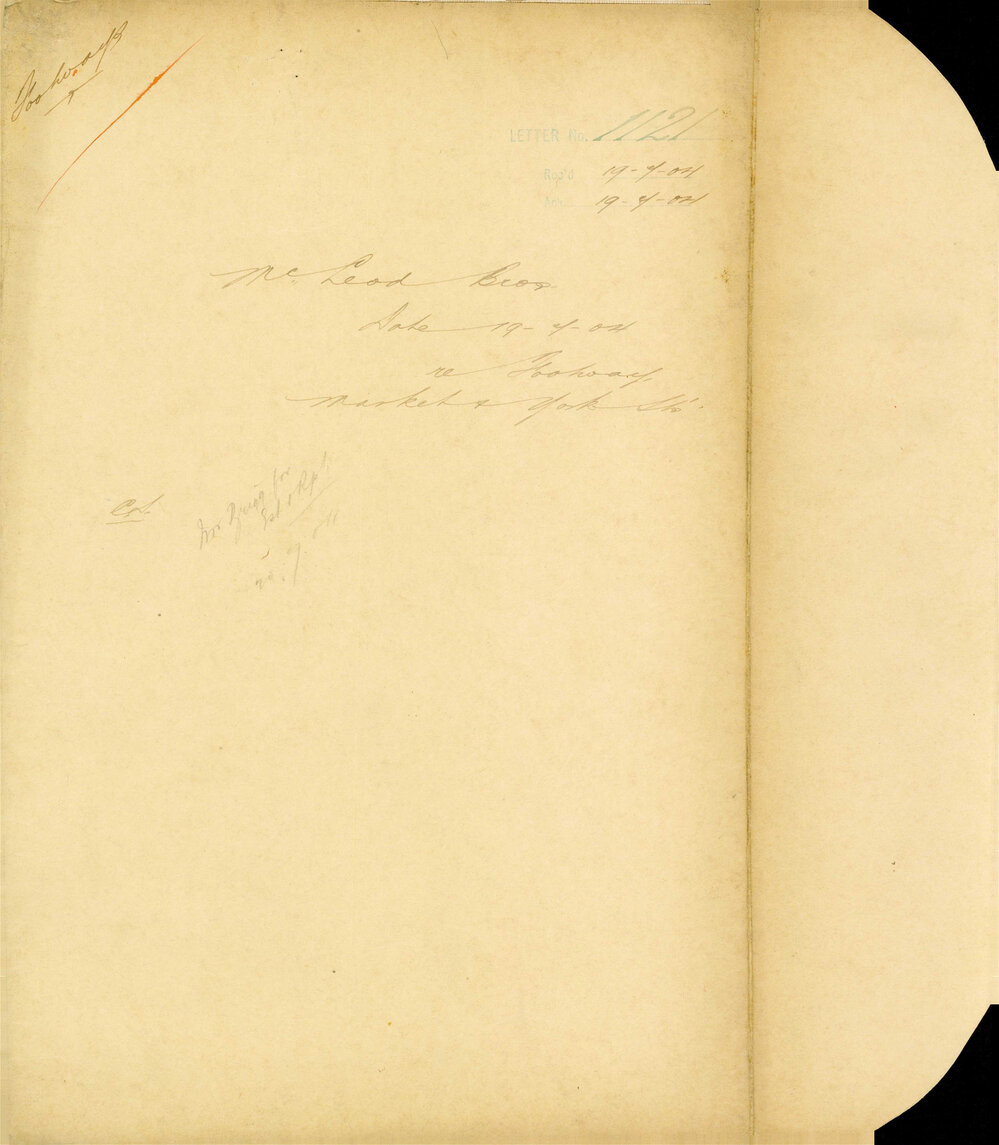 Footways
LETTER No. 1121
Rec'd 19-7-04
Ack. 19-7-04
Mc Leod Bros
Date 19-7-04
re Footway,
Market & York Sts.
Mr. for
Est & Rpt.
20.7.04